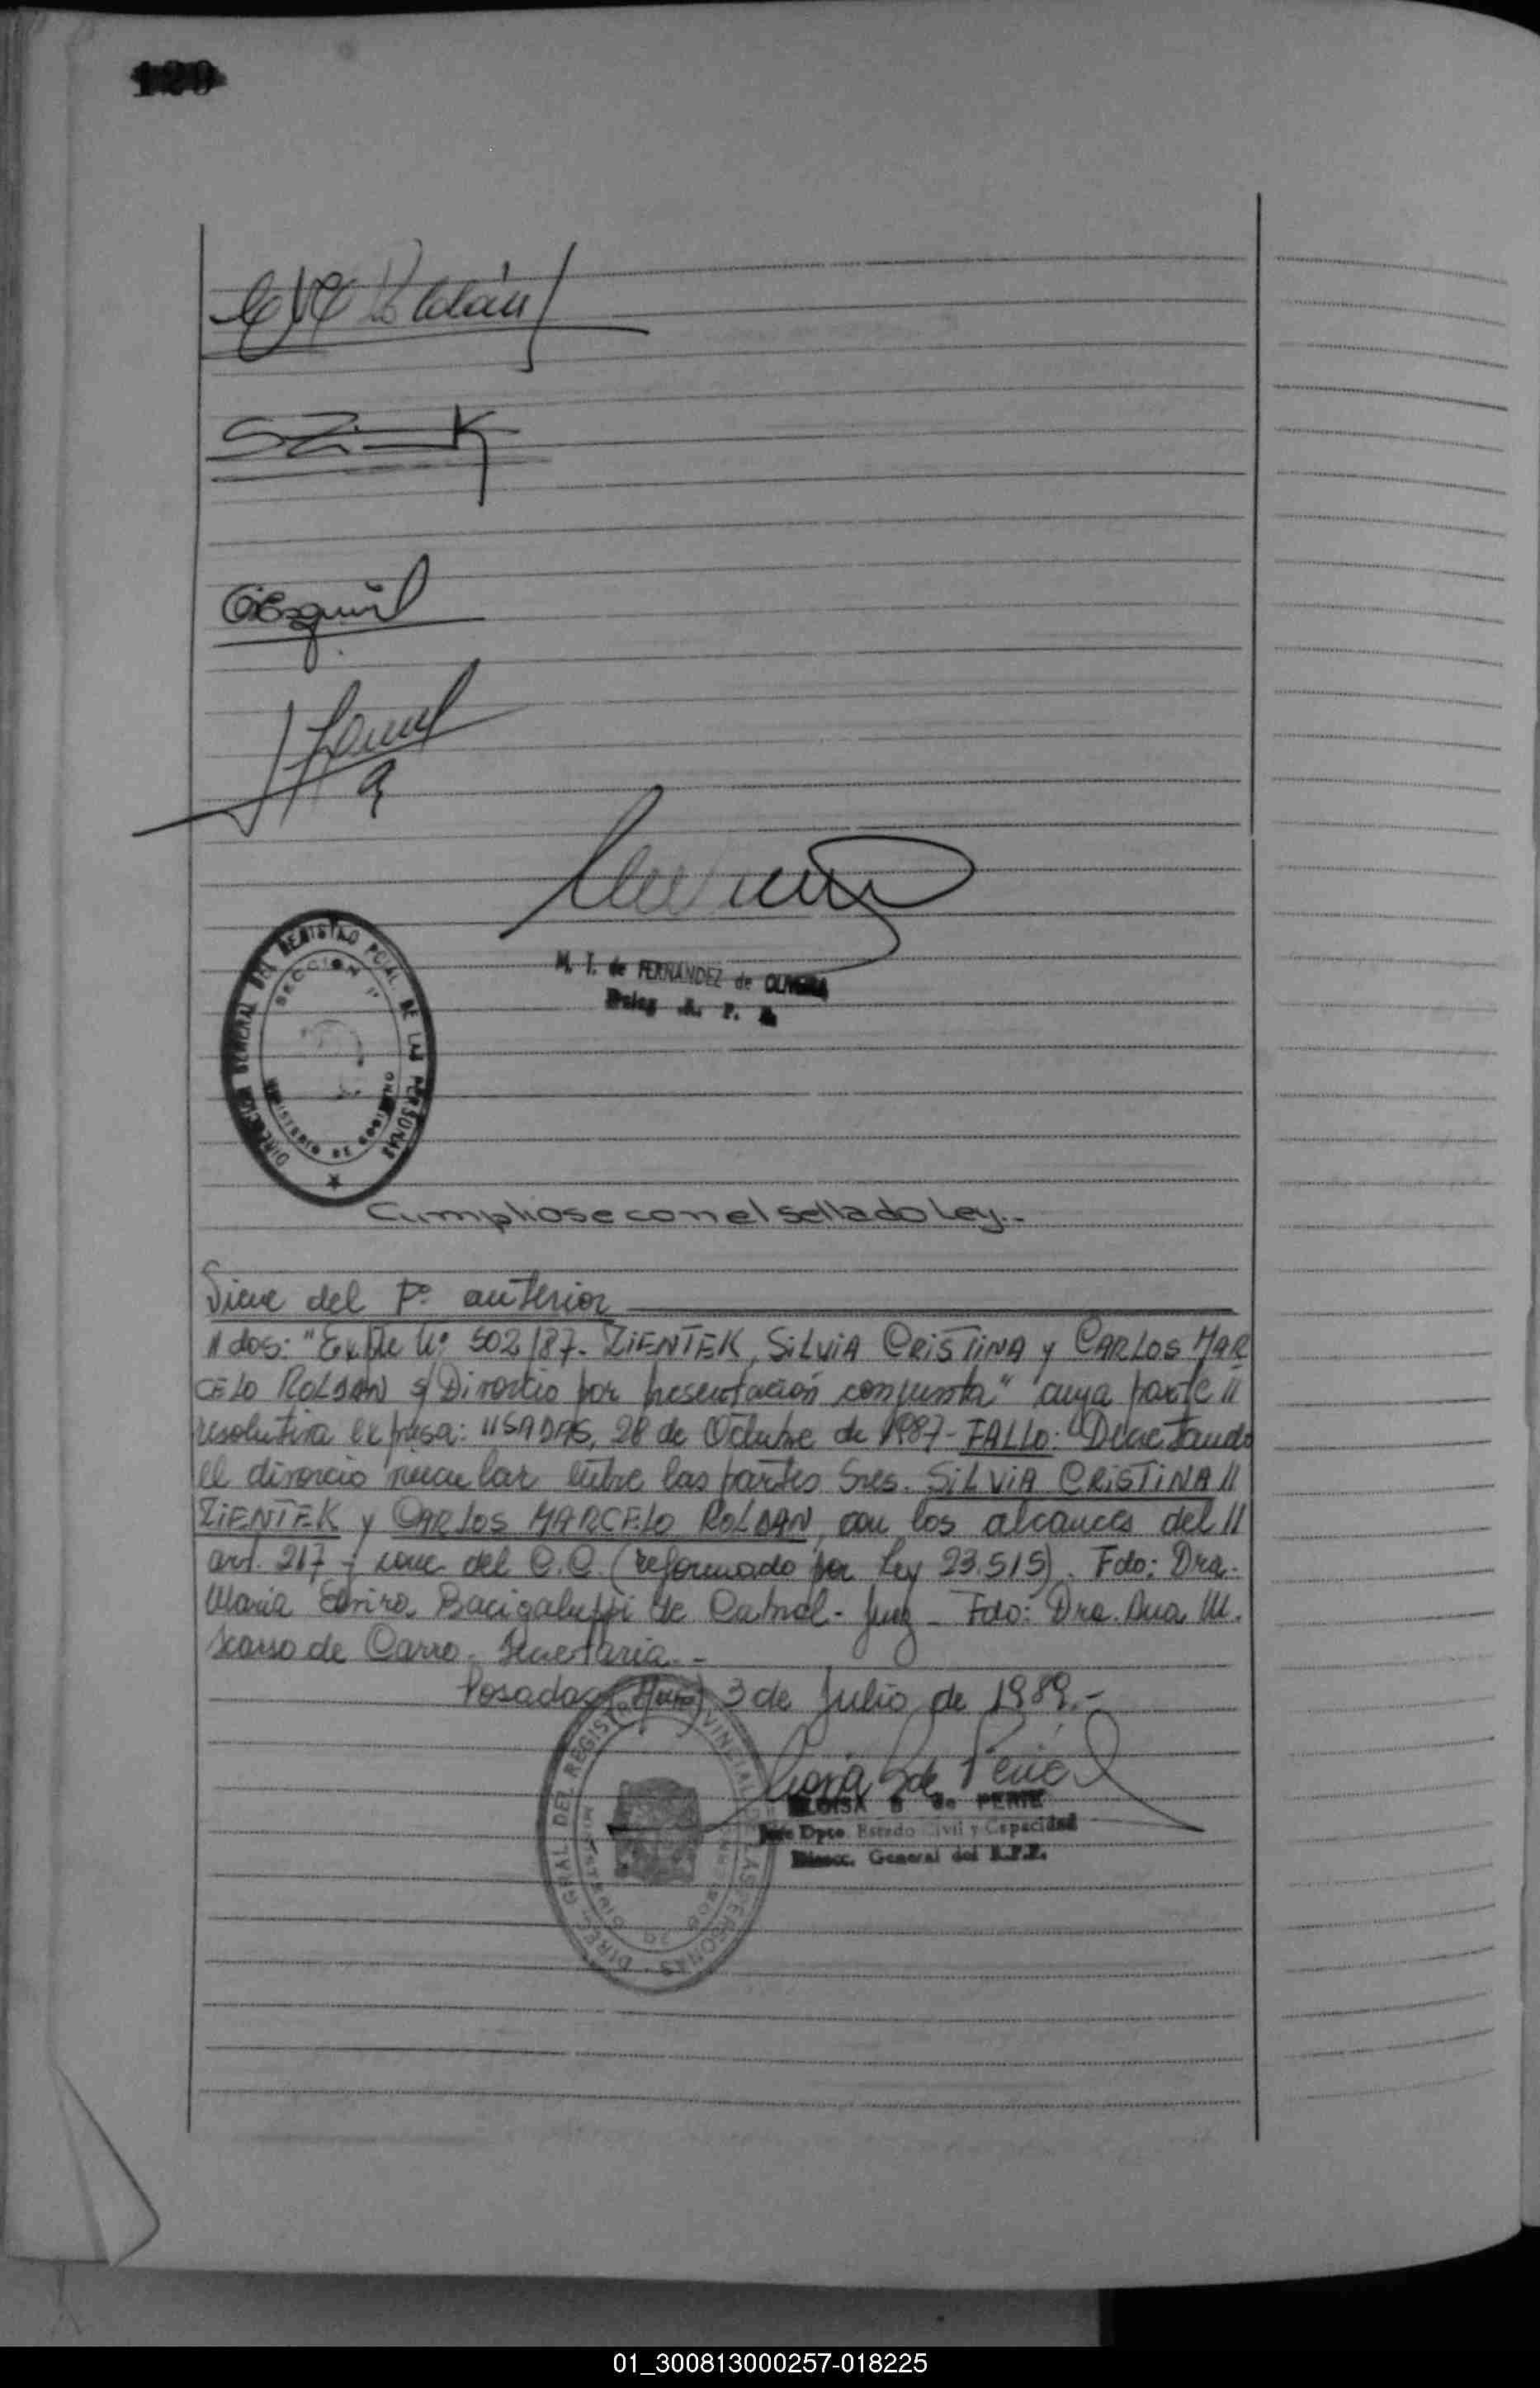 120
C M Roldán
SZi—K
M. T. de FERNANDEZ de OLIVERA
Deleg. R. P.
DIRECCION GENERAL DEL REGISTRO PCIAL. DE LAS PERSONAS
SECCION 1ª
MINISTERIO DE GOBIERNO
Cumpliose con el sellado Ley.-
Viene del Fº anterior
//dos: "Expte Nº 502/87- ZIENTEK, SILVIA CRISTINA y CARLOS MAR
CELO ROLDAN s/ Divorcio por presentación conjunta" cuya parte //
resolutiva expresa: "SADAS, 28 de Octubre de 1987- FALLO: "Decretando
el divorcio vincular entre las partes Sres. SILVIA CRISTINA //
ZIENTEK y CARLOS MARCELO ROLDAN, con los alcances del //
art. 217 y conc del C.C. (reformado por Ley 23.515). Fdo: Dra.
Maria Bacigaluppi de Cabral- Juez - Fdo: Dra. Ana M.
Scarso de Carro- Secretaria.-
Posadas, (Mnes) 3 de Julio de 1989.-
ELOISA B de PERIE
Jefe Dpto. Estado Civil y Capacidad
Direcc. General del R.P.P.
DIREC. GRAL DEL REGISTRO PROVINCIAL DE LAS PERSONAS
MINISTERIO DE GOBIERNO
01_300813000257-018225